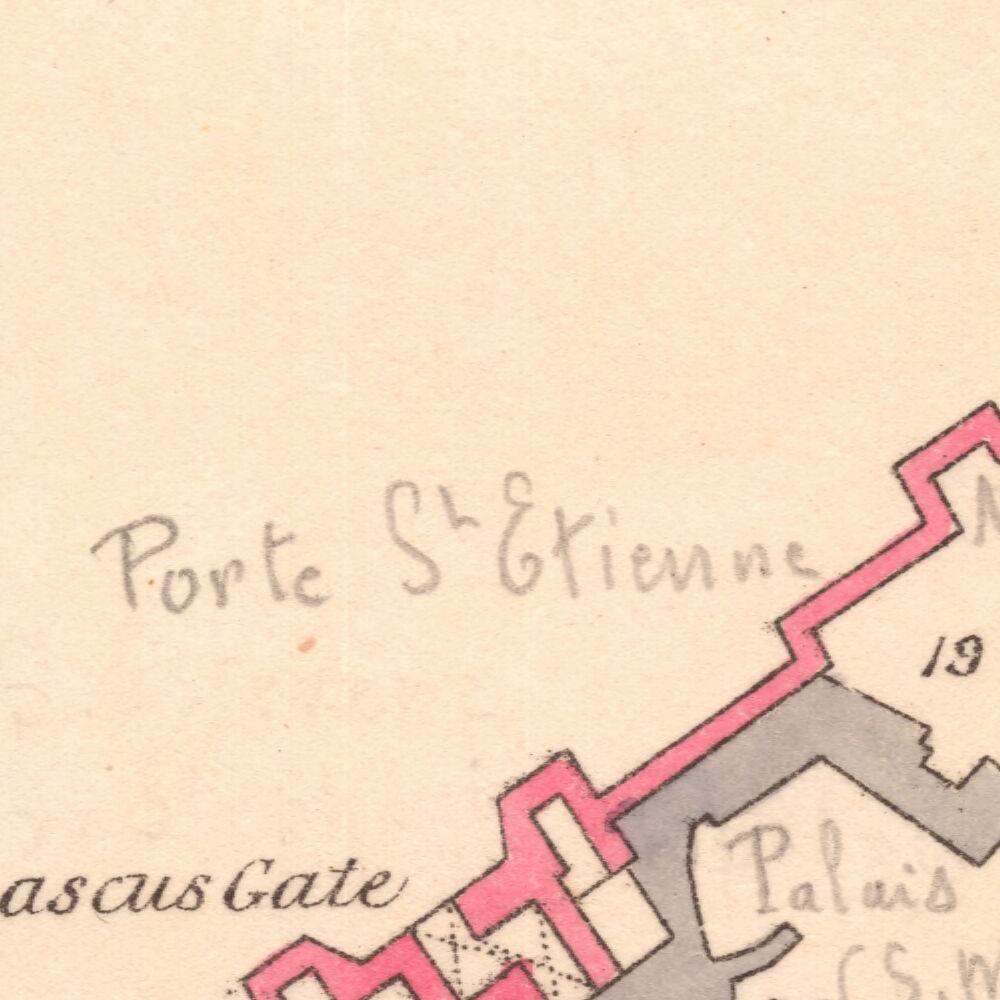 Porte St Etienne
19
ascus Gate
Palais
(S. M